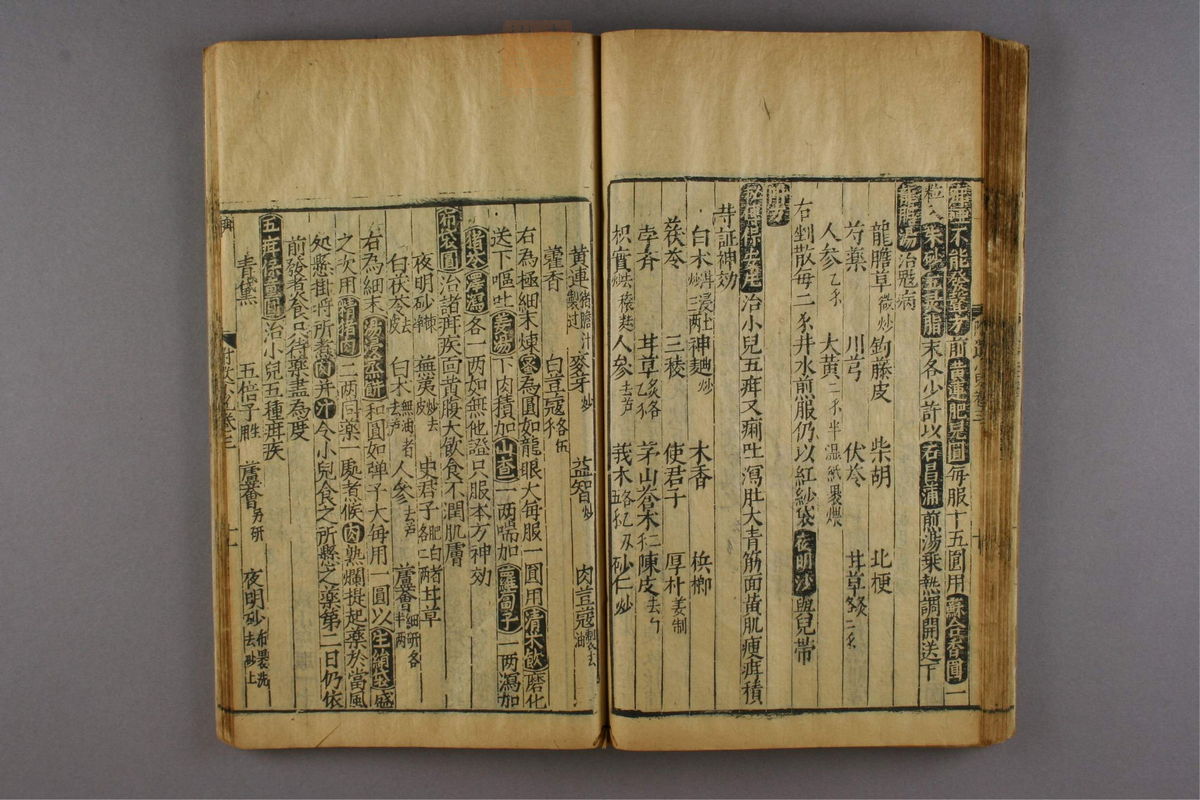 不能發聲者前黃連肥兒圓每服十五圓用蘇合香圓一
粒入朱砂五末各少許以石昌蒲煎湯乘熱調開送下
龍膽湯治魃病
龍膽草微炒 鈎藤皮 柴胡 北梗
芍藥 川芎 伏苓 甘草
人參 大黃二𠂆半濕紙裹煨
右剉散每二𠂆井水煎服仍以紅紗袋夜明沙與兒帶
附方
秘傳保安圓治小兒五疳又痢吐瀉肚大青筋面黃肌瘦疳積
等証神効
白朮 三兩 神麯炒 木香 梹榔
茯苓 三稜 使君子 厚朴姜制
甘草 茅山蒼朮 陳皮去
枳實 人參去芦 莪朮 砂仁炒
黃連猪膽汁製过 麥芽炒 益智炒 肉荳蔻製去油
藿香 白豆寇各五
右為極細末煉蜜為圓如龍眼大每服一圓用清米飲磨化
送下嘔吐姜湯下肉積加山查一兩喘加蘿蔔子一兩瀉加
猪苓澤瀉各一兩如無他證只服本方神効
布袋圓治諸疳疾面黃腹大飲食不潤肌膚
夜明砂 蕪荑炒去皮 史君子肥白者各二兩 甘草
白茯苓去皮 白朮無油者去芦 人參去芦 蘆薈細研各半兩
右為細末湯浸蒸餅和圓如弹子大每用一圓以生絹袋盛
之次用精猪肉二兩同藥一處煮候肉熟爛提起藥於當風
處懸掛將所煮肉并汁令小兒食之所懸之藥第二日仍依
前發煮食只待藥盡為度
五疳保童圓治小兒五種疳疾
青黛 五倍子 蘆薈另研 夜明砂布裹洗去砂土